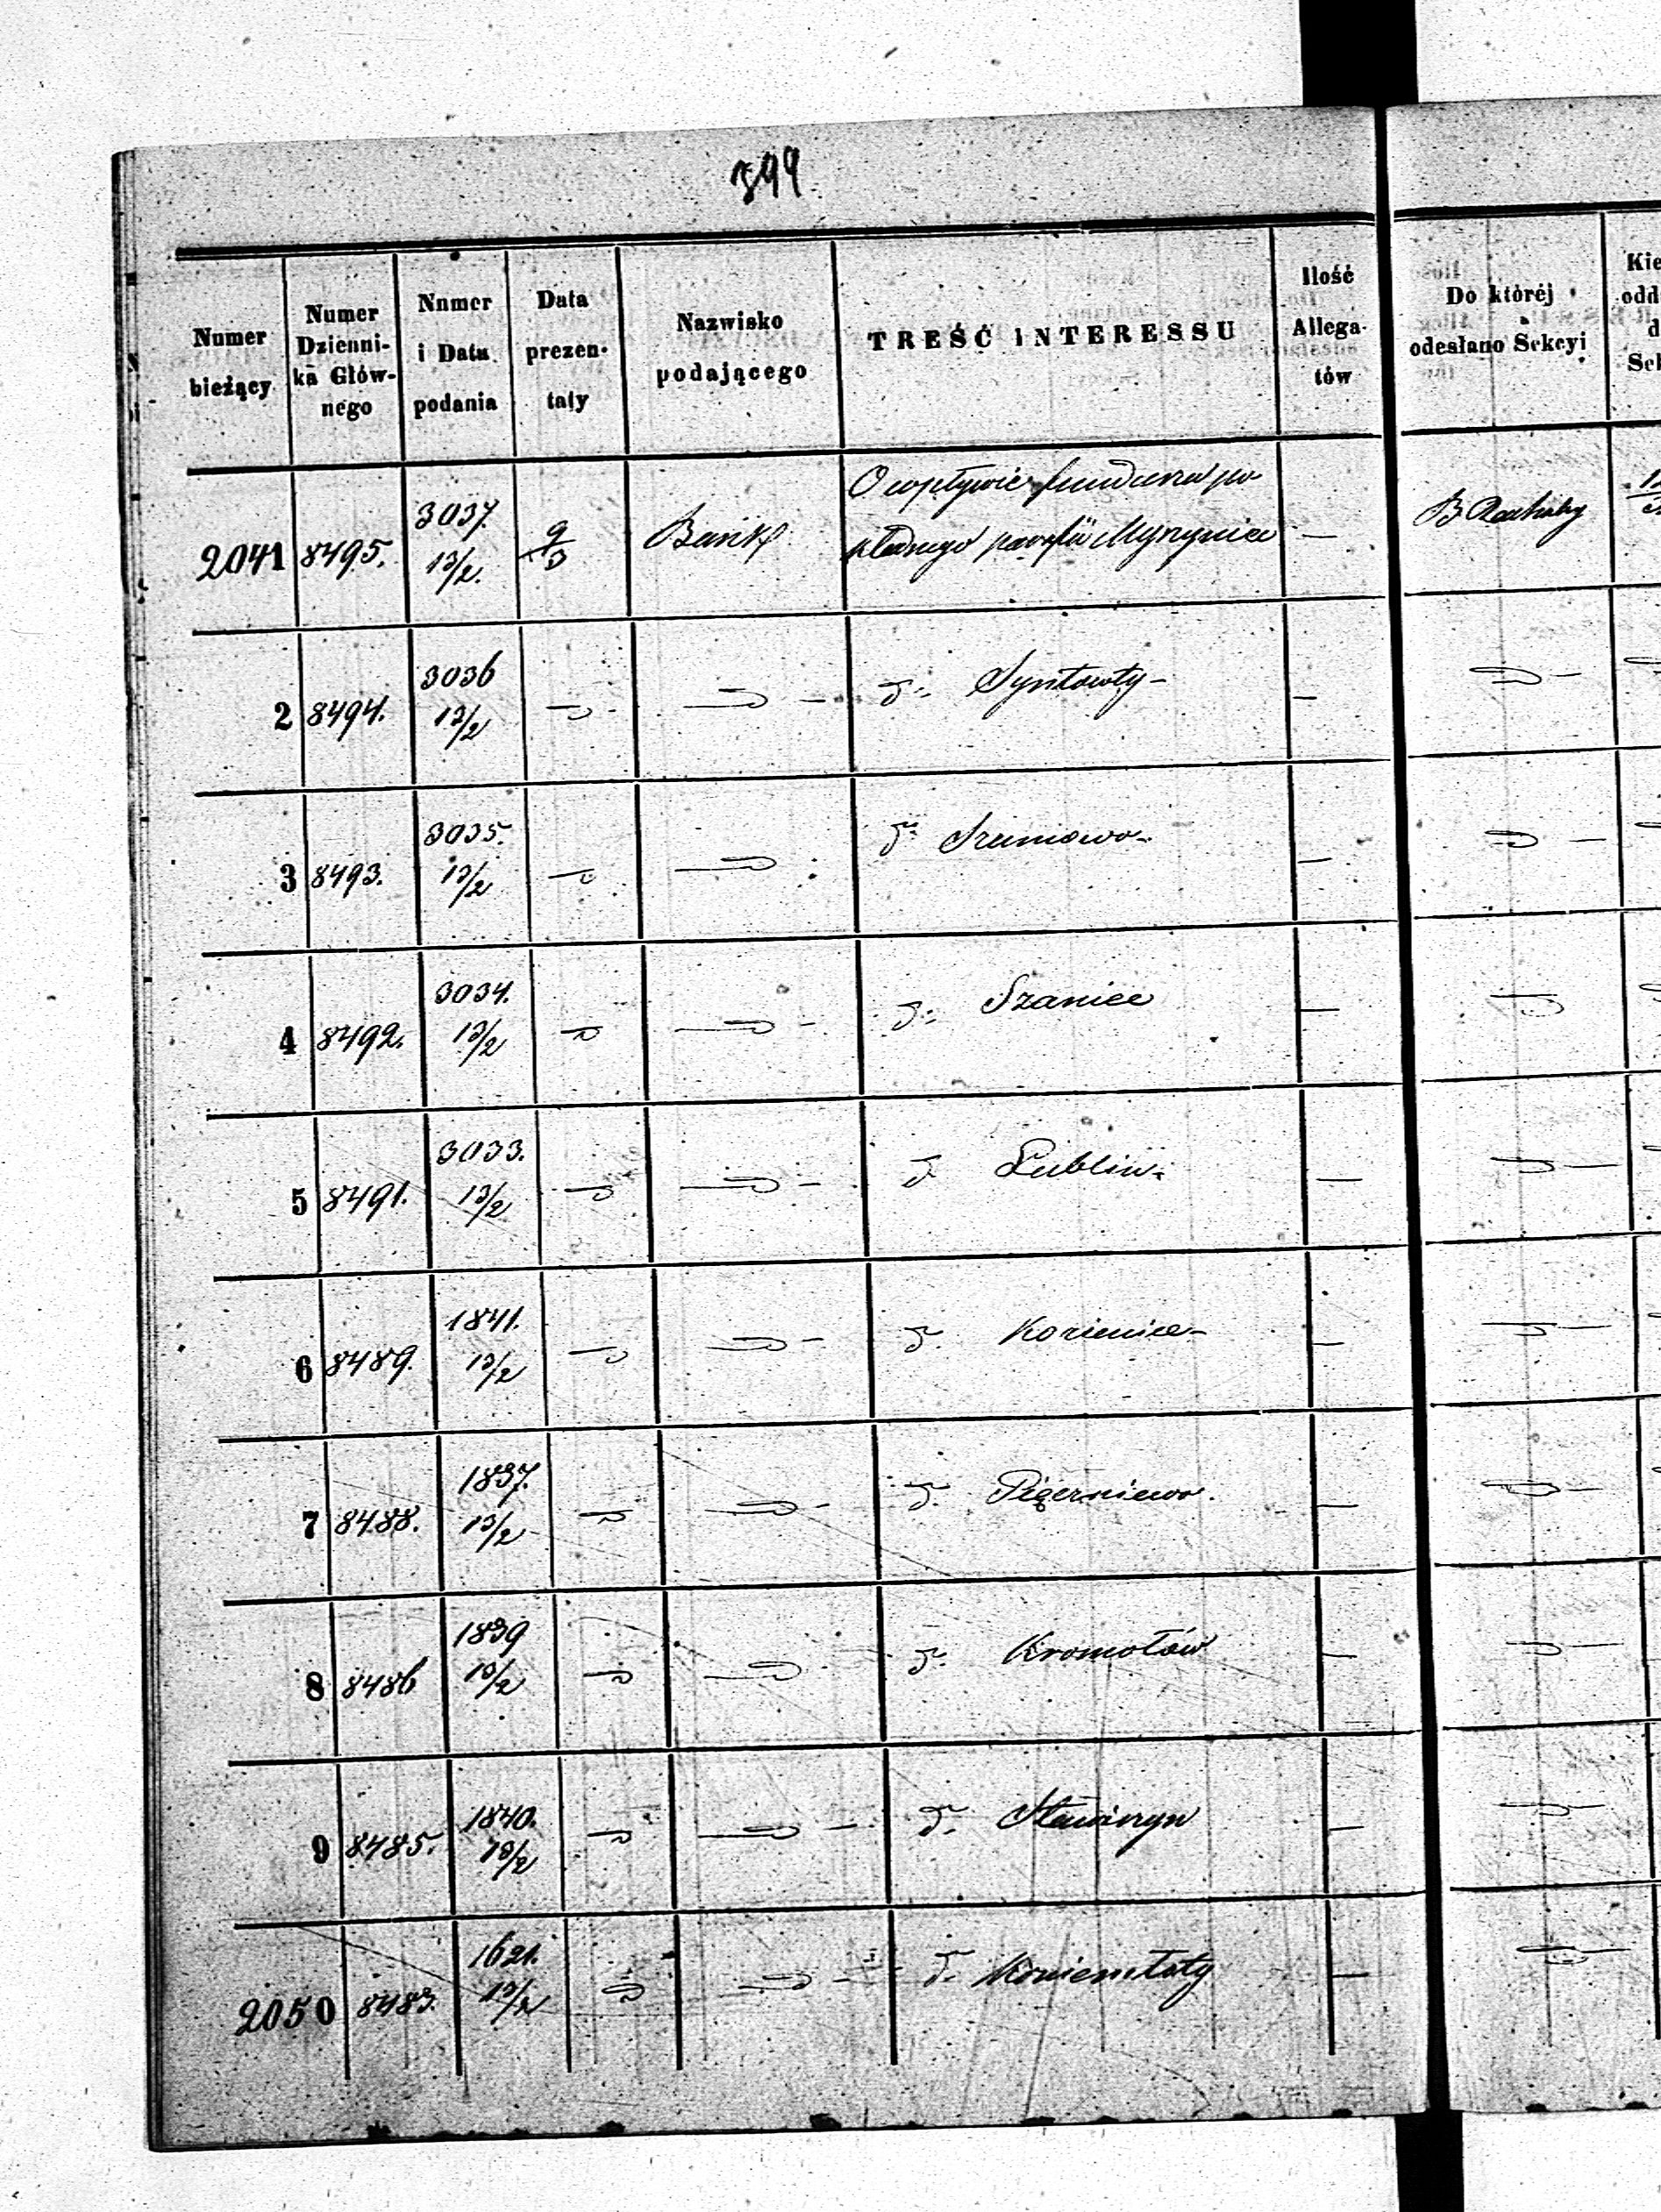 399
Numer bieżący | Numer Dziennika Głównego | Numer i Data podania | Data prezentaty | Nazwisko podającego | TREŚĆ INTERESSU | Ilość Allegatów | Do któréj odesłano Sekcyi
2041 | 8495. | 3037. 13/2. | 9/3 | Bank | O wpływie funduszu pokładnego parafii | — | B
2 | 8494. | 3036 13/2 | d° Syntowty — | —
3 | 8493. | 3035. 13/2 | d° | —
4 | 8492. | 3034. 13/2 | d° Szaniec | —
5 | 8491. | 3033. 13/2 | d° Lublin | —
6 | 8489. | 1841. 13/2 | d° Kozienice — | —
7 | 8488. | 1837. 13/2 | d° | —
8 | 8486 | 1839 13/2 | d° Kromołów | —
9 | 8485. | 1840. 13/2 | d° | —
2050 | 8483. | 1621. 13/2 | d° Koniemłoty | —